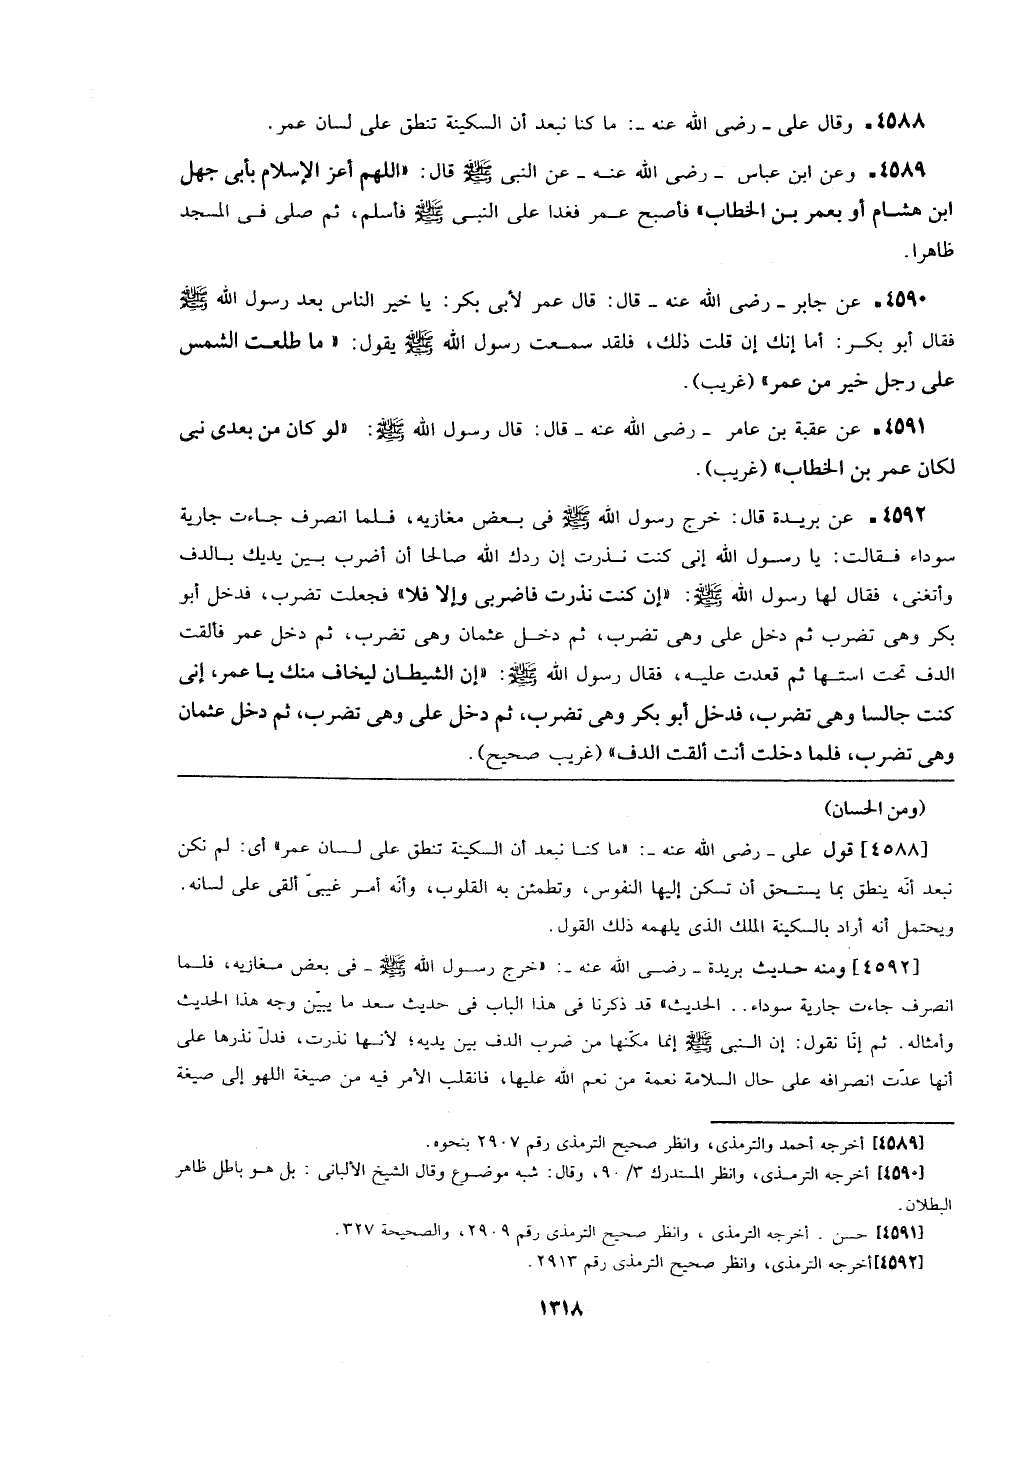 ٤٥٨٨. وقال على ـ رضى الله عنه ـ: ما كنا نبعد أن السكينة تنطق على لسان عمر.
٤٥٨٩. وعن ابن عباس ـ رضى الله عنه ـ عن النبى ﷺ قال: «اللهم أعز الإسلام بأبى جهل
ابن هشام أو بعمر بن الخطاب» فأصبح عمر فغدا على النبى ﷺ فأسلم، ثم صلى فى المسجد
ظاهرا.
٤٥٩٠. عن جابر ـ رضى الله عنه ـ قال: قال عمر لأبى بكر: يا خير الناس بعد رسول الله ﷺ
فقال أبو بكر: أما إنك إن قلت ذلك، فلقد سمعت رسول الله ﷺ يقول: « ما طلعت الشمس
على رجل خير من عمر» (غريب).
٤٥٩١. عن عقبة بن عامر ـ رضى الله عنه ـ قال: قال رسول الله ﷺ: «لو كان من بعدى نبى
لكان عمر بن الخطاب» (غريب).
٤٥٩٢. عن بريدة قال: خرج رسول الله ﷺ فى بعض مغازيه، فلما انصرف جاءت جارية
سوداء فقالت: يا رسول الله إنى كنت نذرت إن ردك الله صالحا أن أضرب بين يديك بالدف
وأتغنى، فقال لها رسول الله ﷺ: «إن كنت نذرت فاضربى وإلا فلا» فجعلت تضرب، فدخل أبو
بكر وهى تضرب ثم دخل على وهى تضرب، ثم دخل عثمان وهى تضرب، ثم دخل عمر فألقت
الدف تحت استها ثم قعدت عليه، فقال رسول الله ﷺ: «إن الشيطان ليخاف منك يا عمر، إنى
كنت جالسا وهى تضرب، فدخل أبو بكر وهى تضرب، ثم دخل على وهى تضرب، ثم دخل عثمان
وهى تضرب، فلما دخلت أنت ألقت الدف» (غريب صحيح).
(ومن الحسان)
[٤٥٨٨] قول على ـ رضى الله عنه ـ: «ما كنا نبعد أن السكينة تنطق على لسان عمر» أى: لم نكن
نبعد أنّه ينطق بما يستحق أن تسكن إليها النفوس، وتطمئن به القلوب، وأنّه أمر غيبىّ ألقى على لسانه.
ويحتمل أنه أراد بالسكينة الملك الذى يلهمه ذلك القول.
[٤٥٩٢] ومنه حديث بريدة ـ رضى الله عنه ـ: «خرج رسول الله ﷺ ـ فى بعض مغازيه، فلما
انصرف جاءت جارية سوداء.. الحديث» قد ذكرنا فى هذا الباب فى حديث سعد ما يبيّن وجه هذا الحديث
وأمثاله. ثم إنّا نقول: إن النبى ﷺ إنما مكّنها من ضرب الدف بين يديه؛ لأنها نذرت، فدلّ نذرها على
أنها عدّت انصرافه على حال السلامة نعمة من نعم الله عليها، فانقلب الأمر فيه من صيغة اللهو إلى صيغة
[٤٥٨٩] أخرجه أحمد والترمذى، وانظر صحيح الترمذى رقم ٢٩٠٧ بنحوه.
[٤٥٩٠] أخرجه الترمذى، وانظر المستدرك ٣/ ٩٠، وقال: شبه موضوع وقال الشيخ الألبانى : بل هو باطل ظاهر
البطلان.
[٤٥٩١] حسن . أخرجه الترمذى ، وانظر صحيح الترمذى رقم ٢٩٠٩، والصحيحة ٣٢٧.
[٤٥٩٢] أخرجه الترمذى، وانظر صحيح الترمذى رقم ٢٩١٣.
١٣١٨